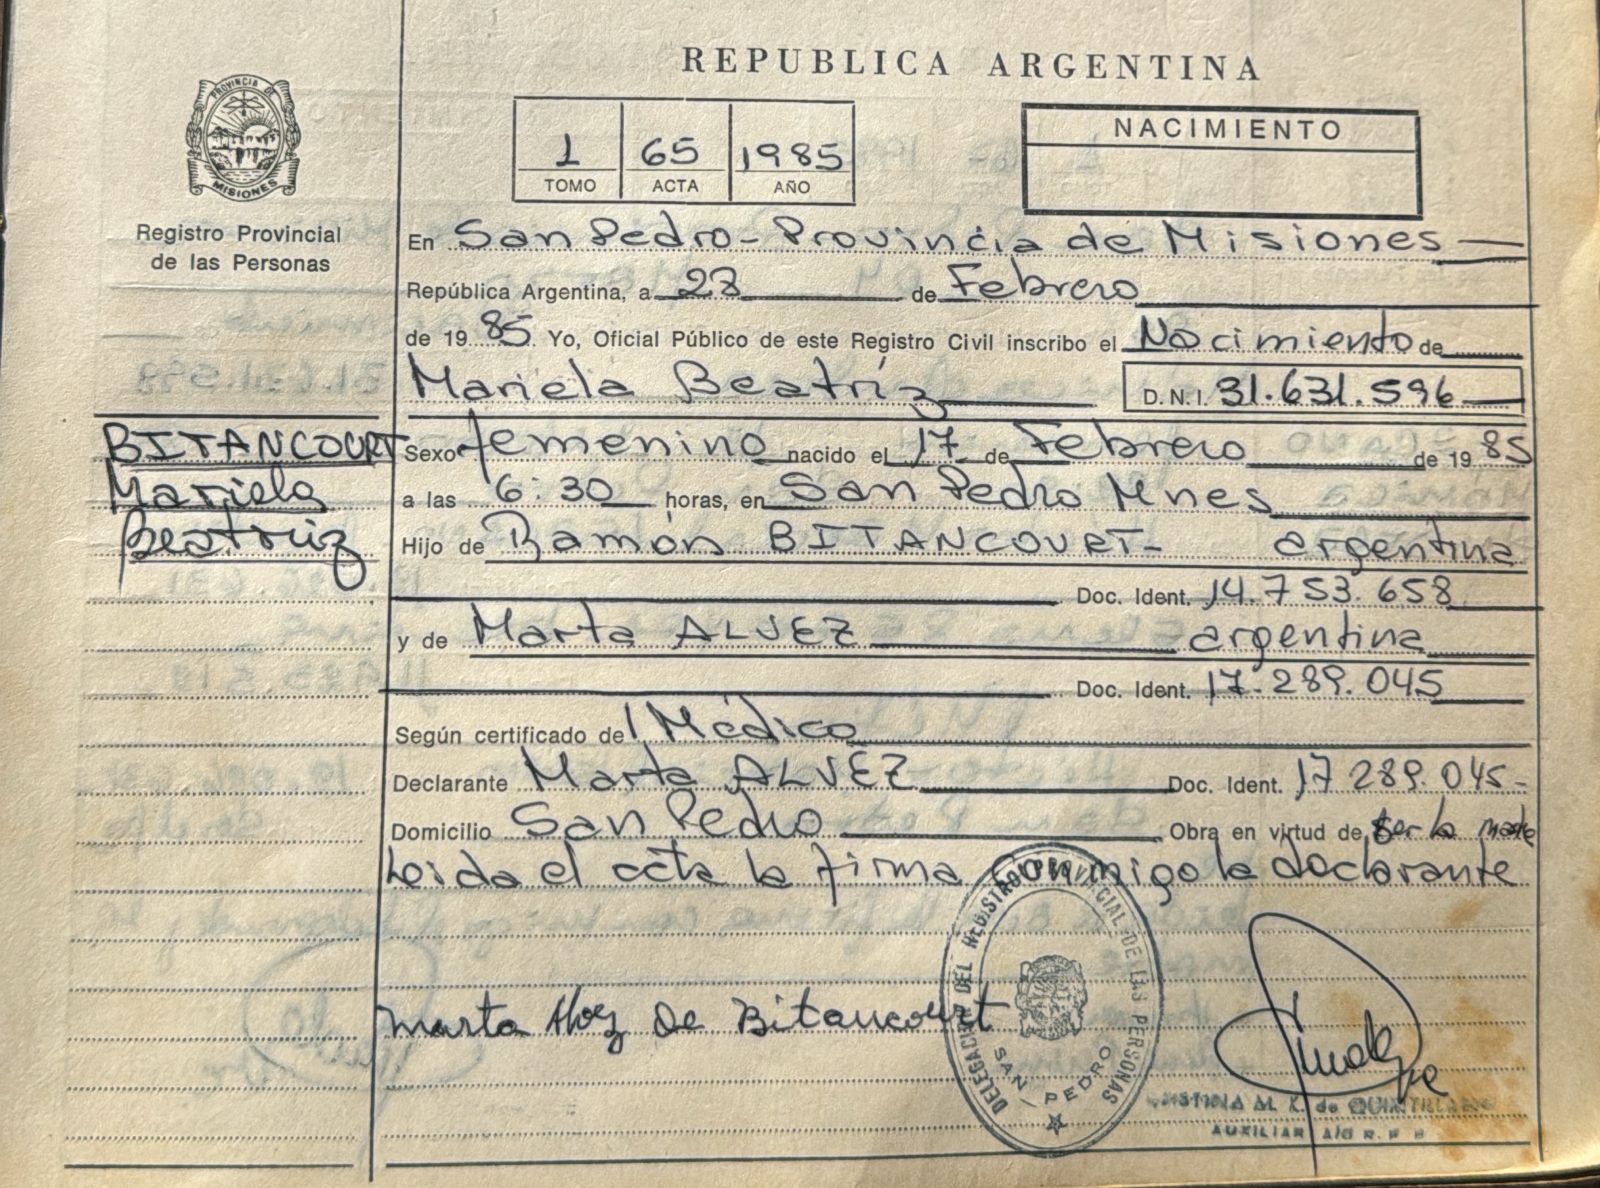 REPUBLICA ARGENTINA
PROVINCIA DE
MISIONES
Registro Provincial
de las Personas
1 65 1985
TOMO ACTA AÑO
NACIMIENTO
En San Pedro - Provincia de Misiones
República Argentina, a 28 de Febrero
de 1985 Yo, Oficial Público de este Registro Civil inscribo el Nacimiento de
Mariela Beatríz D. N. I. 31.631.596
BITANCOURT
Mariela
Beatriz
Sexo femenino nacido el 17 de Febrero de 1985
a las 6:30 horas, en San Pedro Mnes
Hijo de Ramón BITANCOURT- argentina
Doc. Ident. 14.753.658
y de Marta ALVEZ argentina
Doc. Ident. 17.289.045
Según certificado de Médico
Declarante Marta ALVEZ Doc. Ident. 17 289.045-
Domicilio San Pedro Obra en virtud de ser la madre
Leida el acta la firma conmigo la declarante
Marta Alvez De Bitancourt
DELEGACION DEL REGISTRO PROVINCIAL DE LAS PERSONAS
SAN PEDRO
AL K. de QUINTILLANO
AUXILIAR A/C R. P. P.